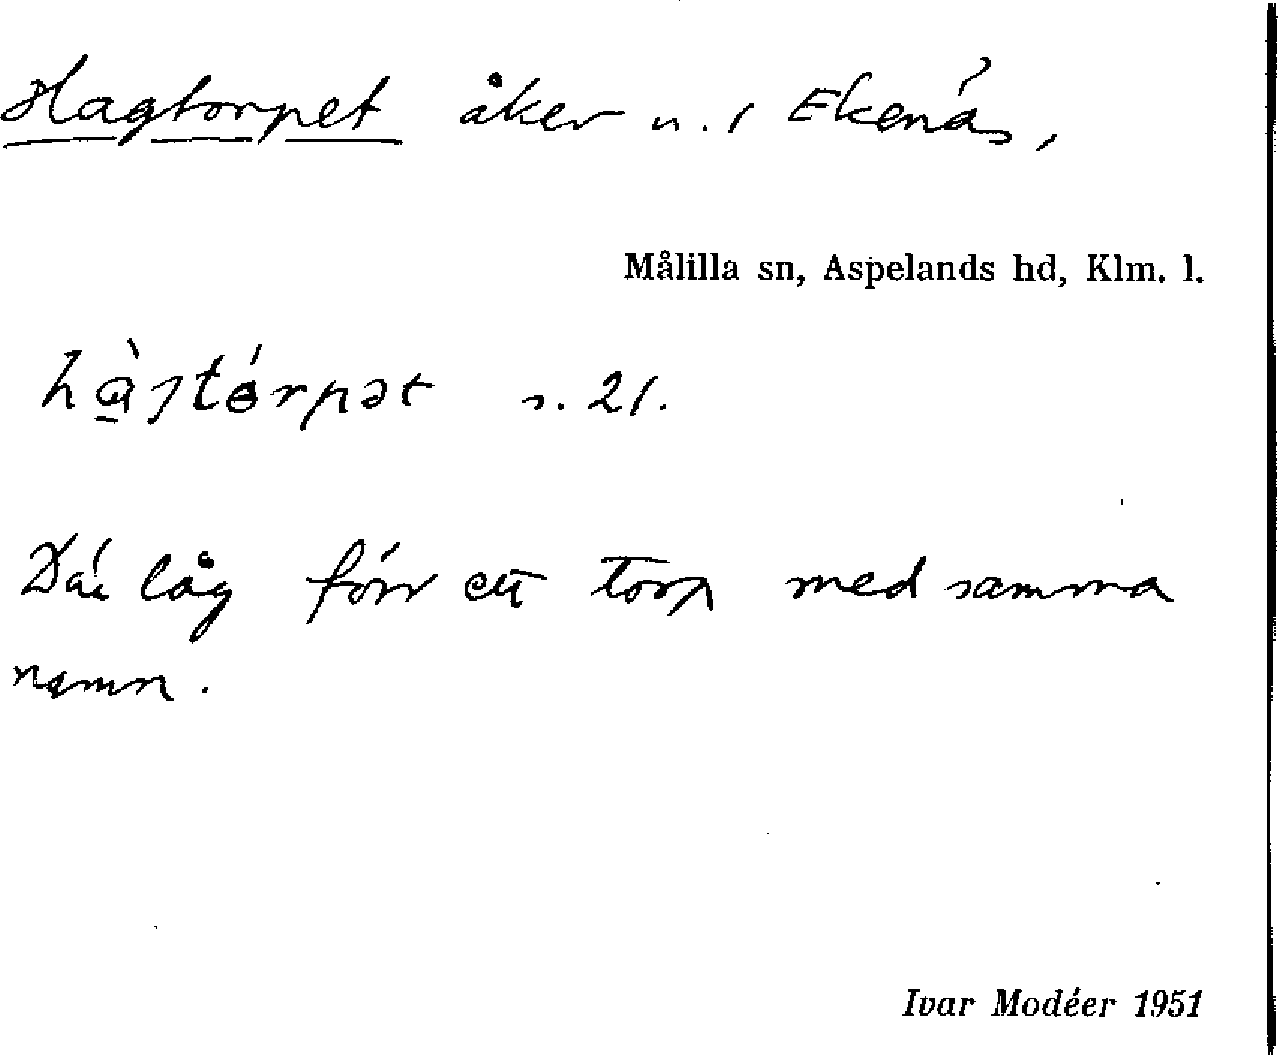 Hagtorpet åker u. 1 Ekenäs,
Målilla sn, Aspelands hd, Klm. l.
s. 21.
Där låg förr ett torp med samma
namn.
Ivar Modéer 1951